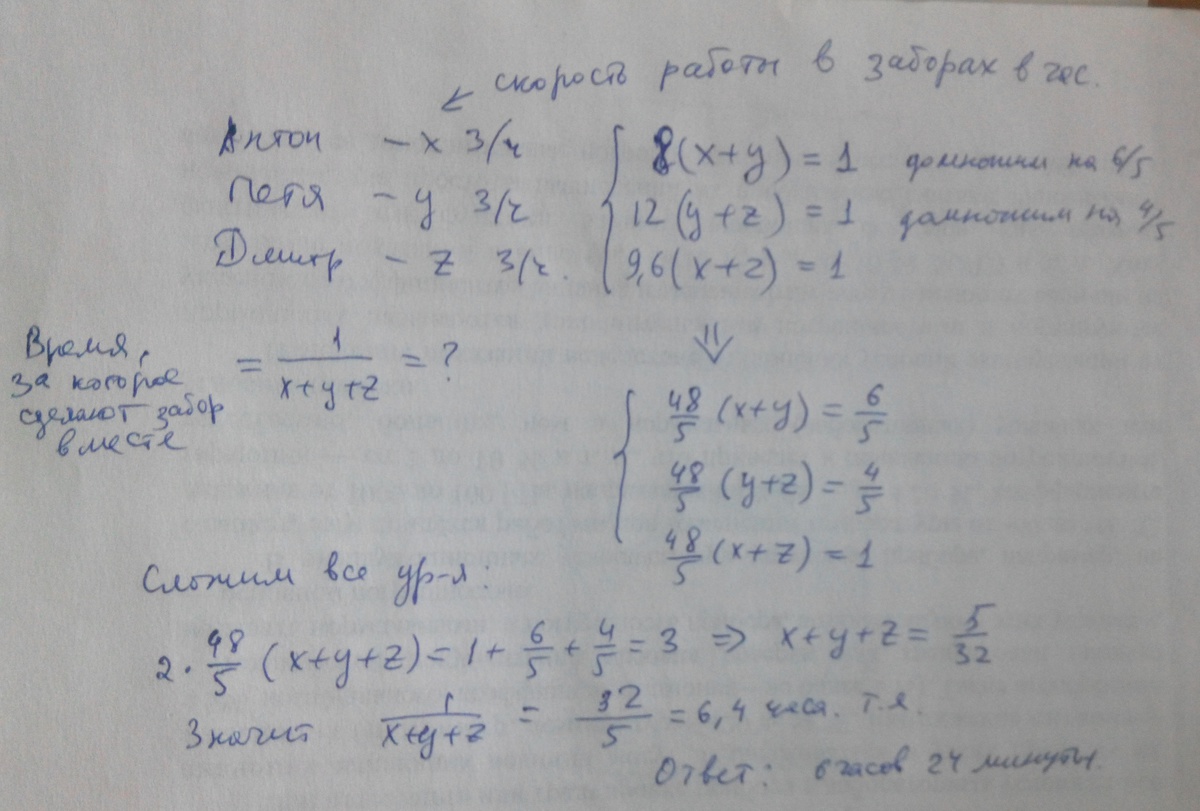 скорость работы в заборах в час.
Антон - x з/ч
Петя - y з/ч
Дмитр - z з/ч.
8(x+y) = 1 домножим на 6/5
12(y+z) = 1 домножим на 4/5
9,6(x+z) = 1
Время,
за которое
сделают забор
вместе
= 1/(x+y+z) = ?
⇓
48/5 (x+y) = 6/5
48/5 (y+z) = 4/5
48/5 (x+z) = 1
Сложим все ур-я:
2 · 48/5 (x+y+z) = 1 + 6/5 + 4/5 = 3 => x+y+z = 5/32
Значит 1/(x+y+z) = 32/5 = 6,4 часа. т.я.
Ответ: 6 часов 24 минуты.